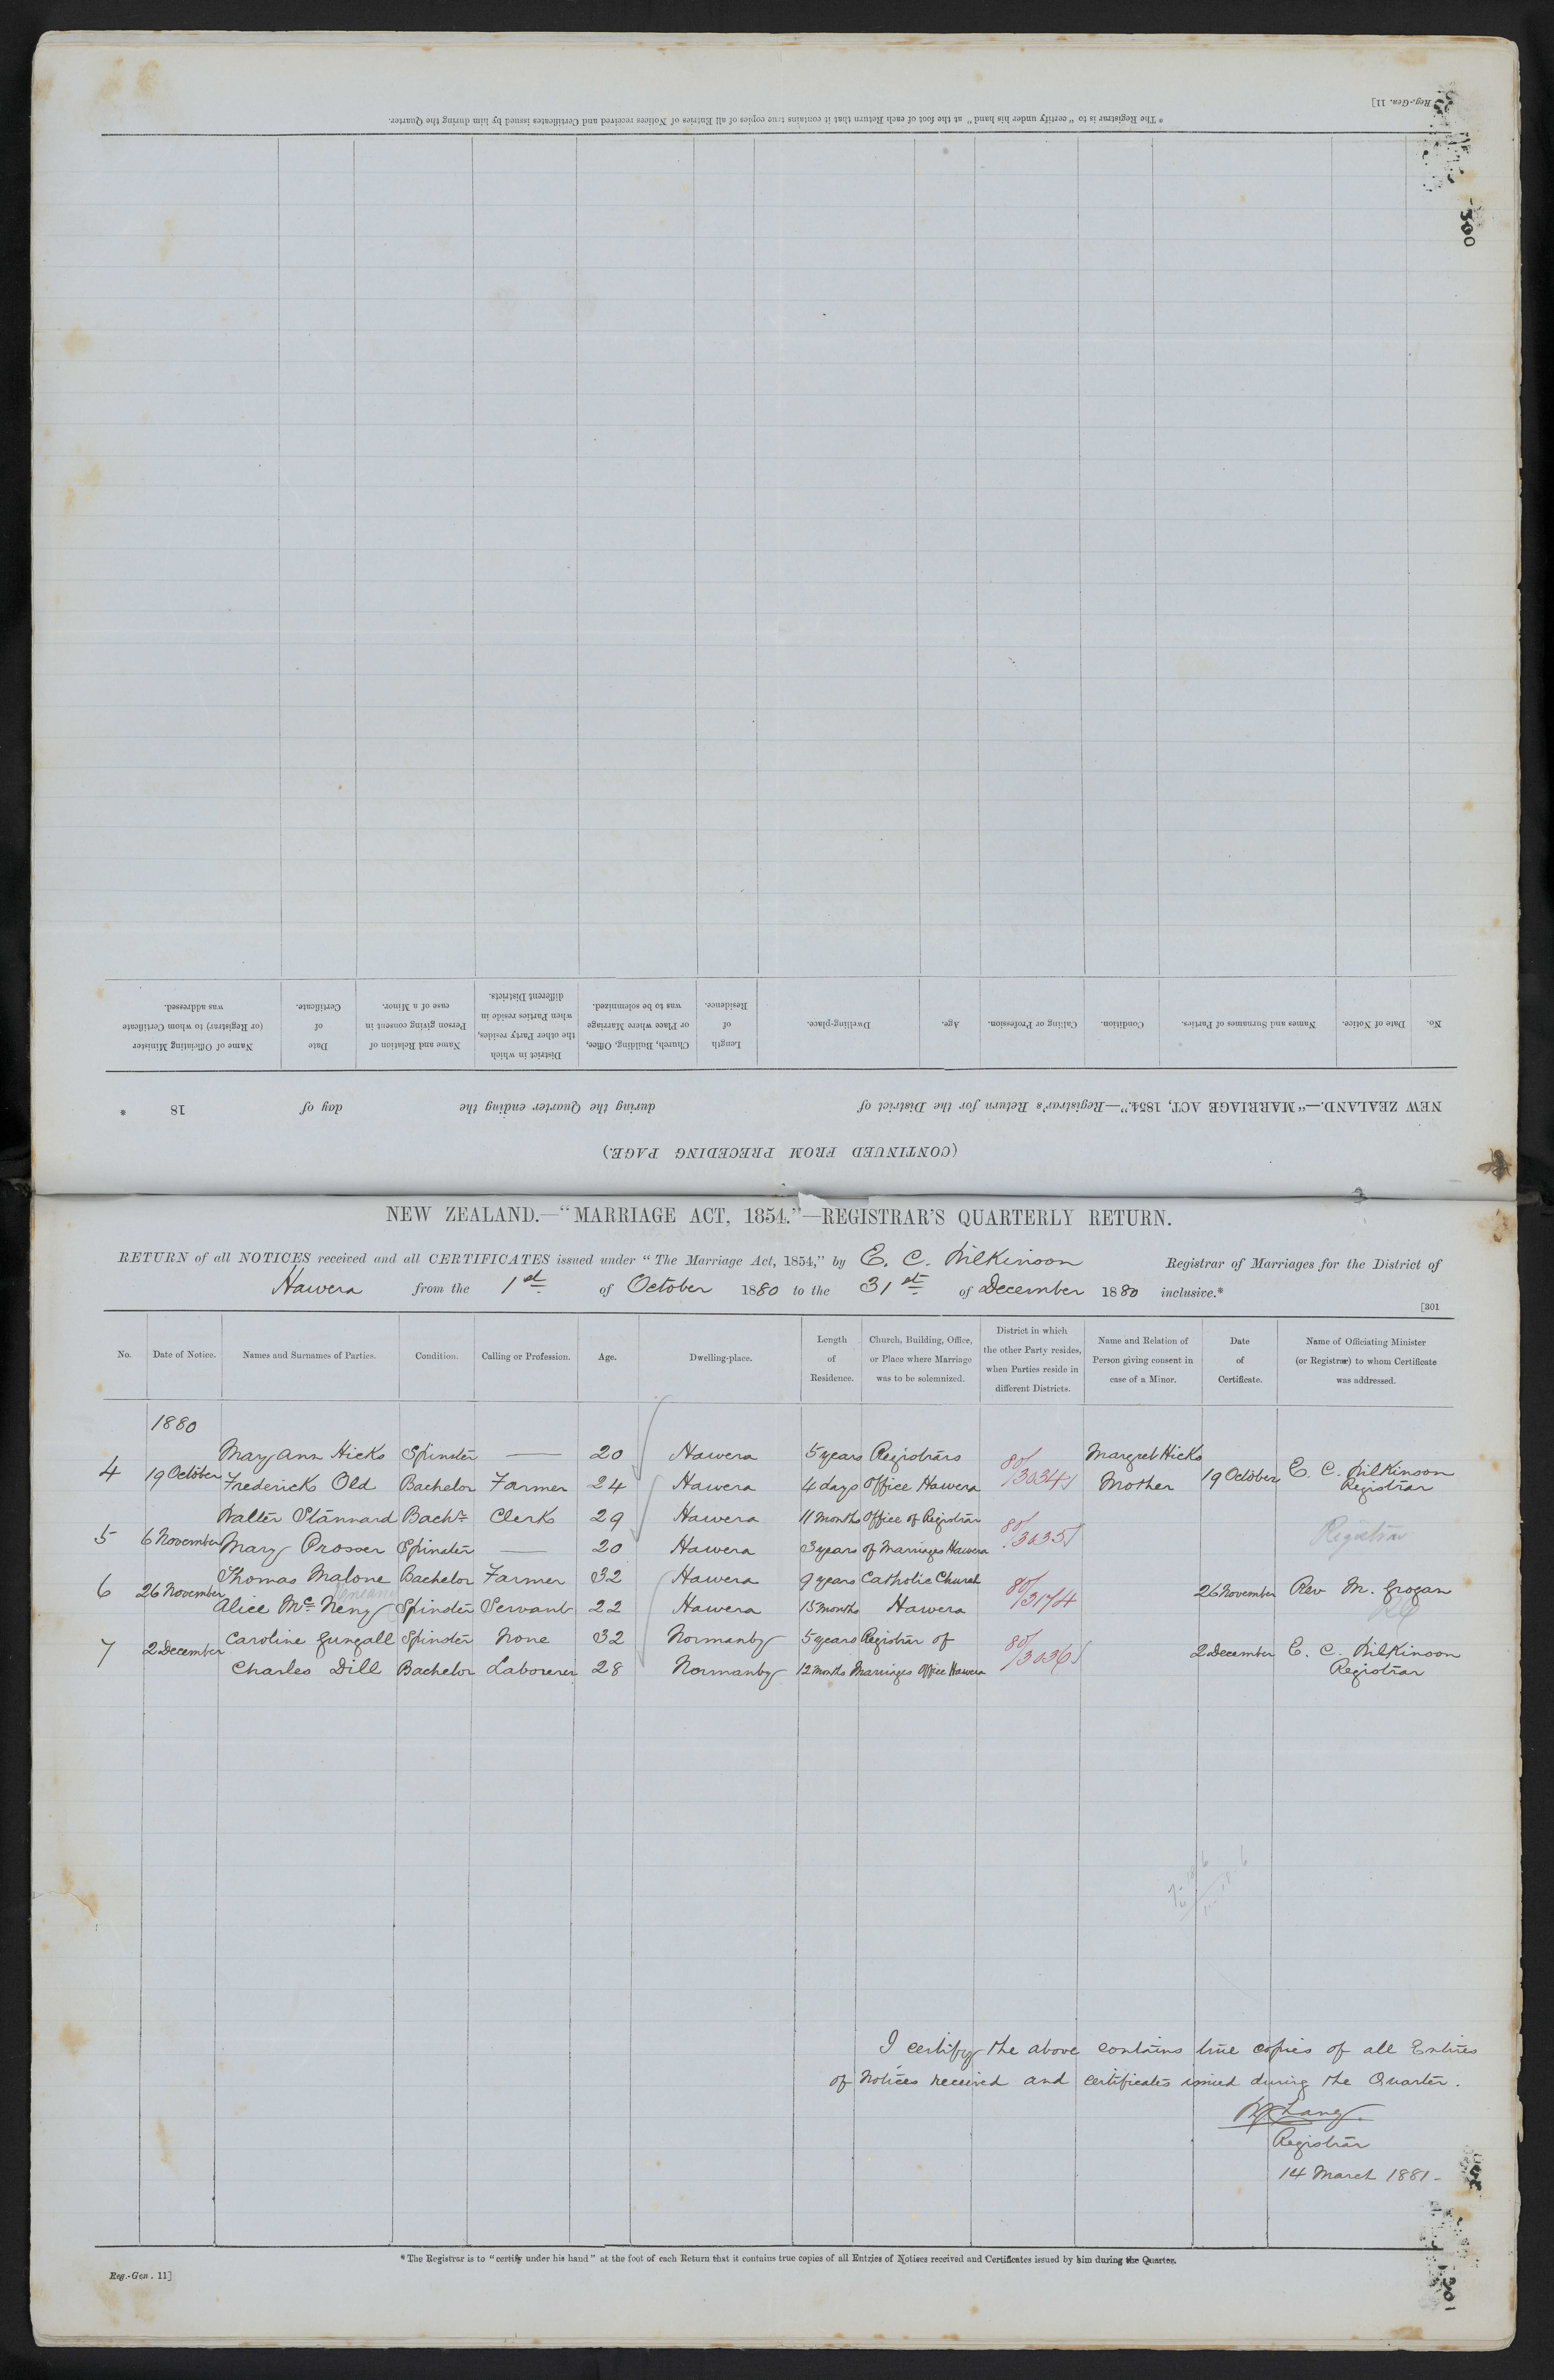 Reg.-Gen. 11]
* The Registrar is to "certify under his hand" at the foot of each Return that it contains true copies of all Entries of Notices received and Certificates issued by him during the Quarter.
300
(CONTINUED FROM PRECEDING PAGE.)
NEW ZEALAND.—"MARRIAGE ACT, 1854."—Registrar's Return for the District of during the Quarter ending the day of 18 *
No. Date of Notice. Names and Surnames of Parties. Condition. Calling or Profession. Age. Dwelling-place. Length of Residence. Church, Building, Office, or Place where Marriage was to be solemnized. District in which the other Party resides, when Parties reside in different Districts. Name and Relation of Person giving consent in case of a Minor. Date of Certificate. Name of Officiating Minister (or Registrar) to whom Certificate was addressed.
NEW ZEALAND.—"MARRIAGE ACT, 1854."—REGISTRAR'S QUARTERLY RETURN.
RETURN of all NOTICES received and all CERTIFICATES issued under "The Marriage Act, 1854," by E. C. Wilkinson Registrar of Marriages for the District of
Hawera from the 1st of October 1880 to the 31st of December 1880 inclusive.*
[301
No. Date of Notice. Names and Surnames of Parties. Condition. Calling or Profession. Age. Dwelling-place. Length of Residence. Church, Building, Office, or Place where Marriage was to be solemnized. District in which the other Party resides, when Parties reside in different Districts. Name and Relation of Person giving consent in case of a Minor. Date of Certificate. Name of Officiating Minister (or Registrar) to whom Certificate was addressed.
1880
Mary Ann Hicks Spinster — 20 Hawera 5 years Registrars 80/3034 Margret Hicks
4 19 October Frederick Old Bachelor Farmer 24 Hawera 4 days Office Hawera Mother 19 October E. C. Wilkinson Registrar
Walter Stannard Bachr. Clerk 29 Hawera 11 Months Office of Registrar 80/3035
5 6 November Mary Prosser Spinster — 20 Hawera 3 years of Marriages Hawera Registrar
Thomas Malone Bachelor Farmer 32 Hawera 9 years Catholic Church 80/3174
6 26 November Alice Mc Neny Spinster Servant 22 Hawera 15 months Hawera 26 November Rev M. Grogan
Caroline Gungall Spinster None 32 Normanby 5 years Registrar of 80/3036
7 2 December Charles Dill Bachelor Laborerer 28 Normanby 12 Months Marriages Office Hawera 2 December E. C. Wilkinson Registrar
I certify the above contains true copies of all Entries
of Notices received and certificates issued during the Quarter.
Lang
Registrar
14 March 1881-
* The Registrar is to "certify under his hand" at the foot of each Return that it contains true copies of all Entries of Notices received and Certificates issued by him during the Quarter.
Reg.-Gen. 11]